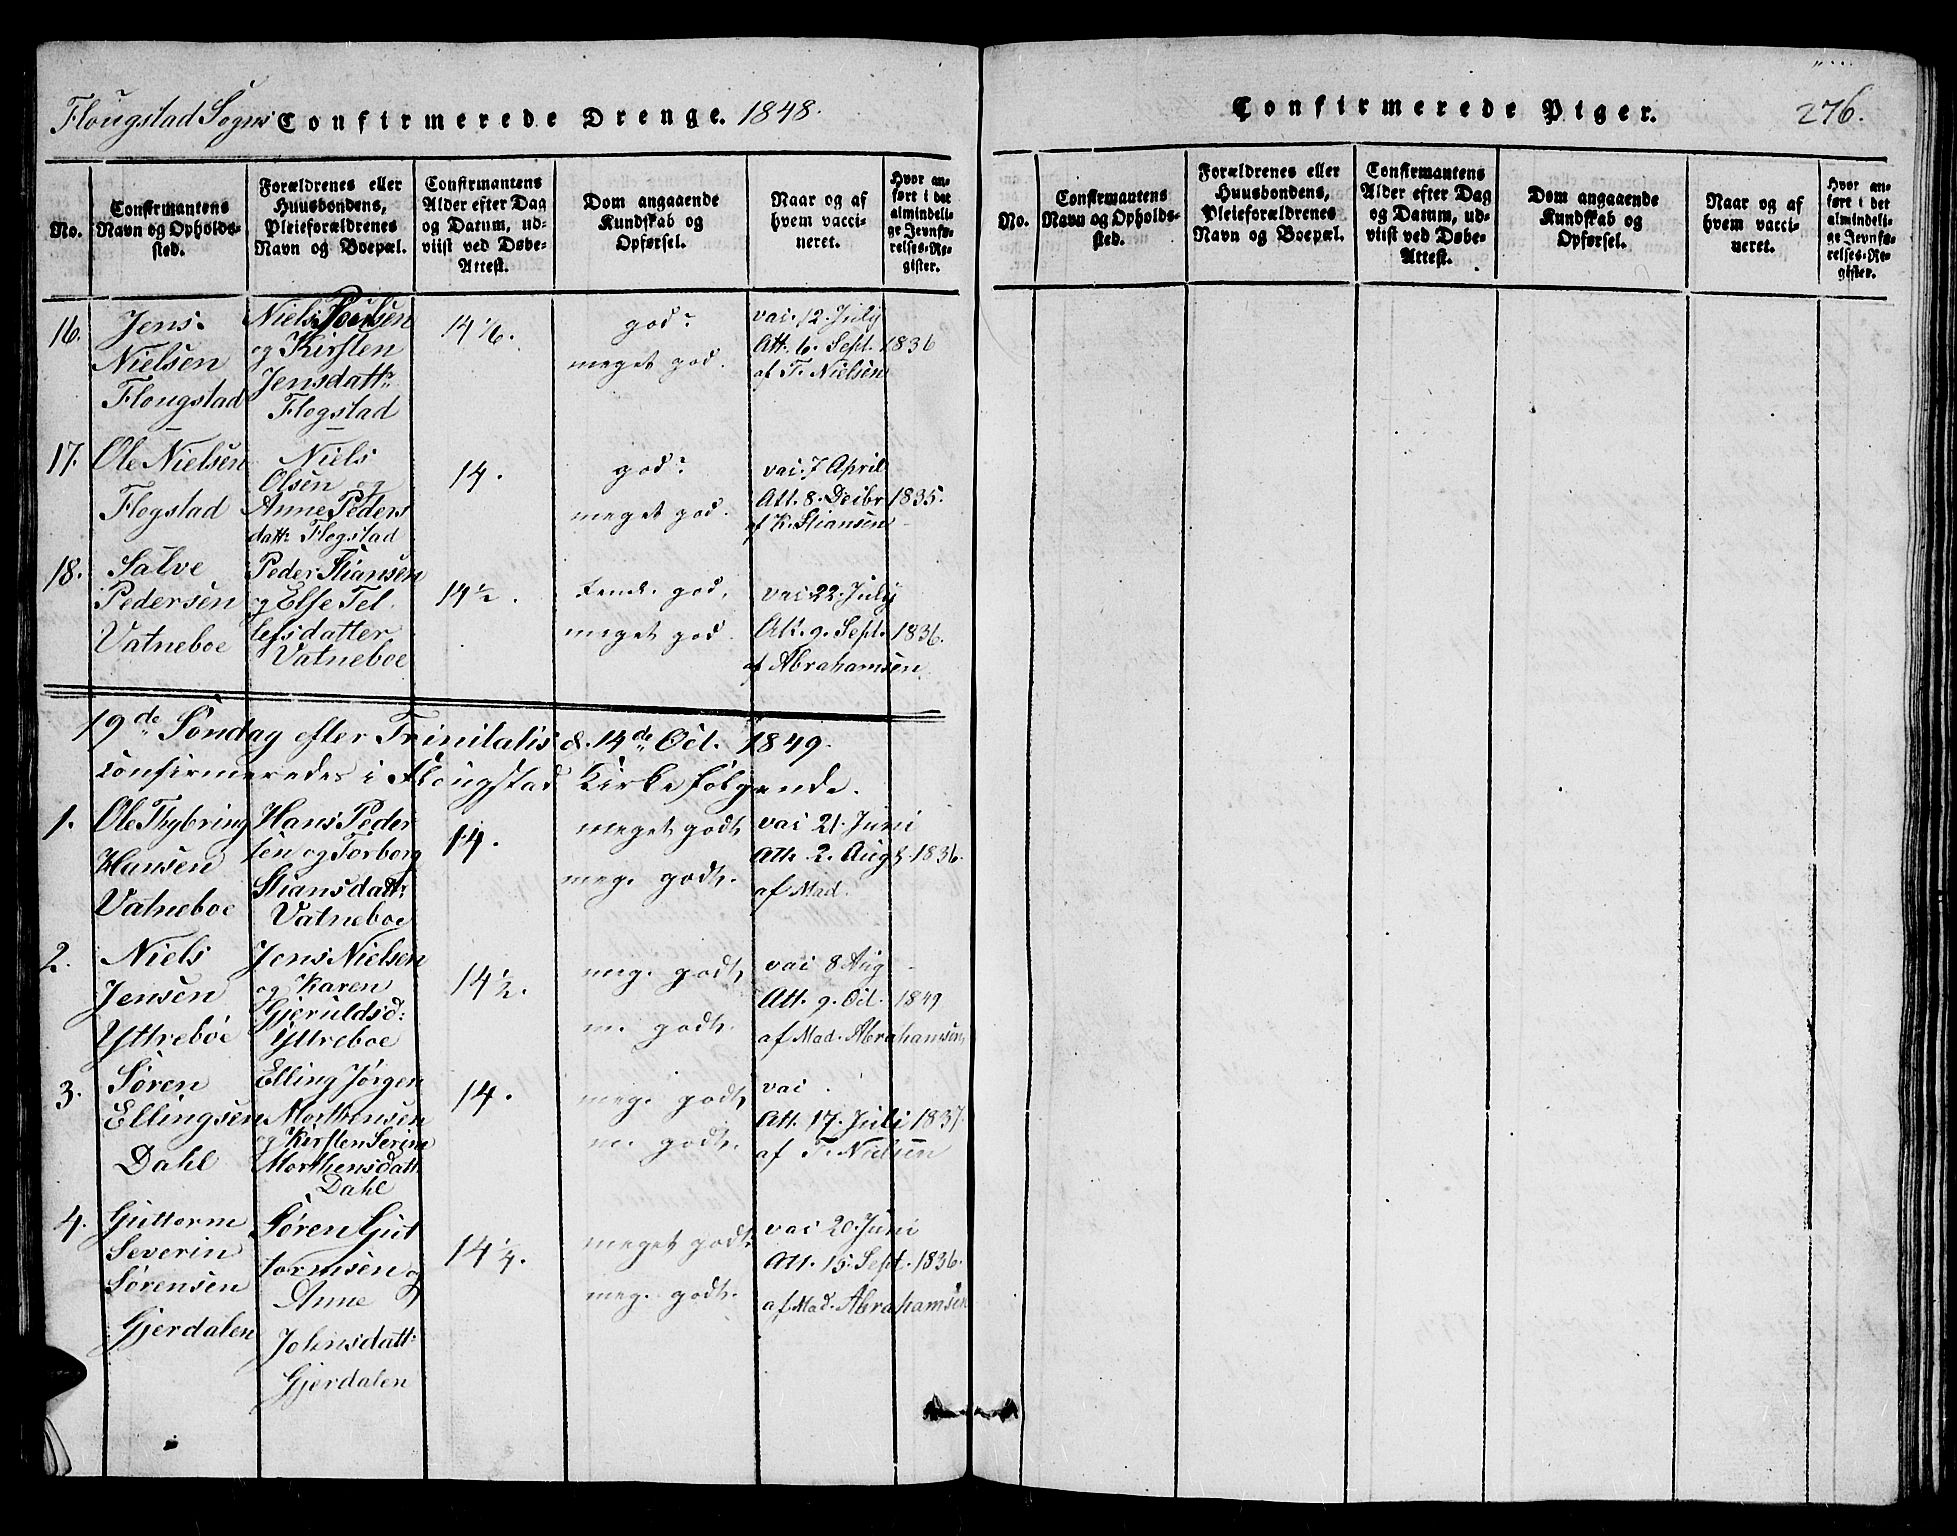 Flougstad Sogns Confirmerede Drenge. 1848.
No.
Confirmantens Navn og Opholdssted.
Forældrenes eller Huusbondens, Pleieforældrenes Navn og Boepæl.
Confirmantens Alder efter Dag og Datum, udviist ved Døbe-Attest.
Dom angaaende Kundskab og Opførsel.
Naar og af hvem vaccineret.
Hvor anført i det almindelige Jevnførelses-Register.
16.
Jens
Nielsen
Flougstad
Niels Poulsen
og Kirsten
Jensdattr
Flogstad
14 1/6.
god
meget god.
vac. 12. July
Att. 6. Sept. 1836
af T. Nielsen
17.
Ole Nielsen
Flogstad
Niels
Olsen og
Anne Peders
dattr Flogstad
14.
god
meget god.
vac. 7 April
Att. 8. Decbr 1835.
af K. Stiansen
18.
Salve
Pedersen
Vatneboe
Peder Stiansen
og Else Tel
lefsdatter
Vatneboe
14 1/2.
god.
meget god.
vac. 22. July
Att. 9. Sept. 1836.
af Abrahamsen
19de Søndag efter Trinitatis d. 14de Oct. 1849.
confirmeredes i Flougstad Kirke følgende.
1.
Ole Thybring
Hansen
Vatneboe
Hans Peder
sen og Torborg
Stiansdattr
Vatneboe
14.
meget godt
meg. godt.
vac 21. Juni
Att. 2. Aug. 1836.
af Mad.
2.
Niels
Jensen
Yttreboe
Jens Nielsen
og Karen
Gjeruldsd:
Yttreboe
14 1/2.
meg. godt,
m. godt.
vac 8 Aug
Att. 9. Oct. 1849
af Mad. Abrahamsen,
3.
Søren
Ellingsen
Dahl
Elling Jørgen
Morthensen
og Kirsten Serine
Morthensdatt
Dahl
14.
meg. godt,
m. godt.
vac
Att. 17. Juli 1837.
af T. Nielsen
4.
Guttorm
Severin
Sørensen
Gjerdalen
Søren Gut
tormsen og
Anne
Johnsdattr
Gjerdalen
14 1/4.
meget godt
meg. godt.
vac 20. Juni
Att. 15. Sept. 1836.
af Mad. Abrahamsen
Confirmerede Piger.
276.
No.
Confirmantens Navn og Opholdssted.
Forældrenes eller Huusbondens, Pleieforældrenes Navn og Boepæl.
Confirmantens Alder efter Dag og Datum, udviist ved Døbe-Attest.
Dom angaaende Kundskab og Opførsel.
Naar og af hvem vaccineret.
Hvor anført i det almindelige Jevnførelses-Register.